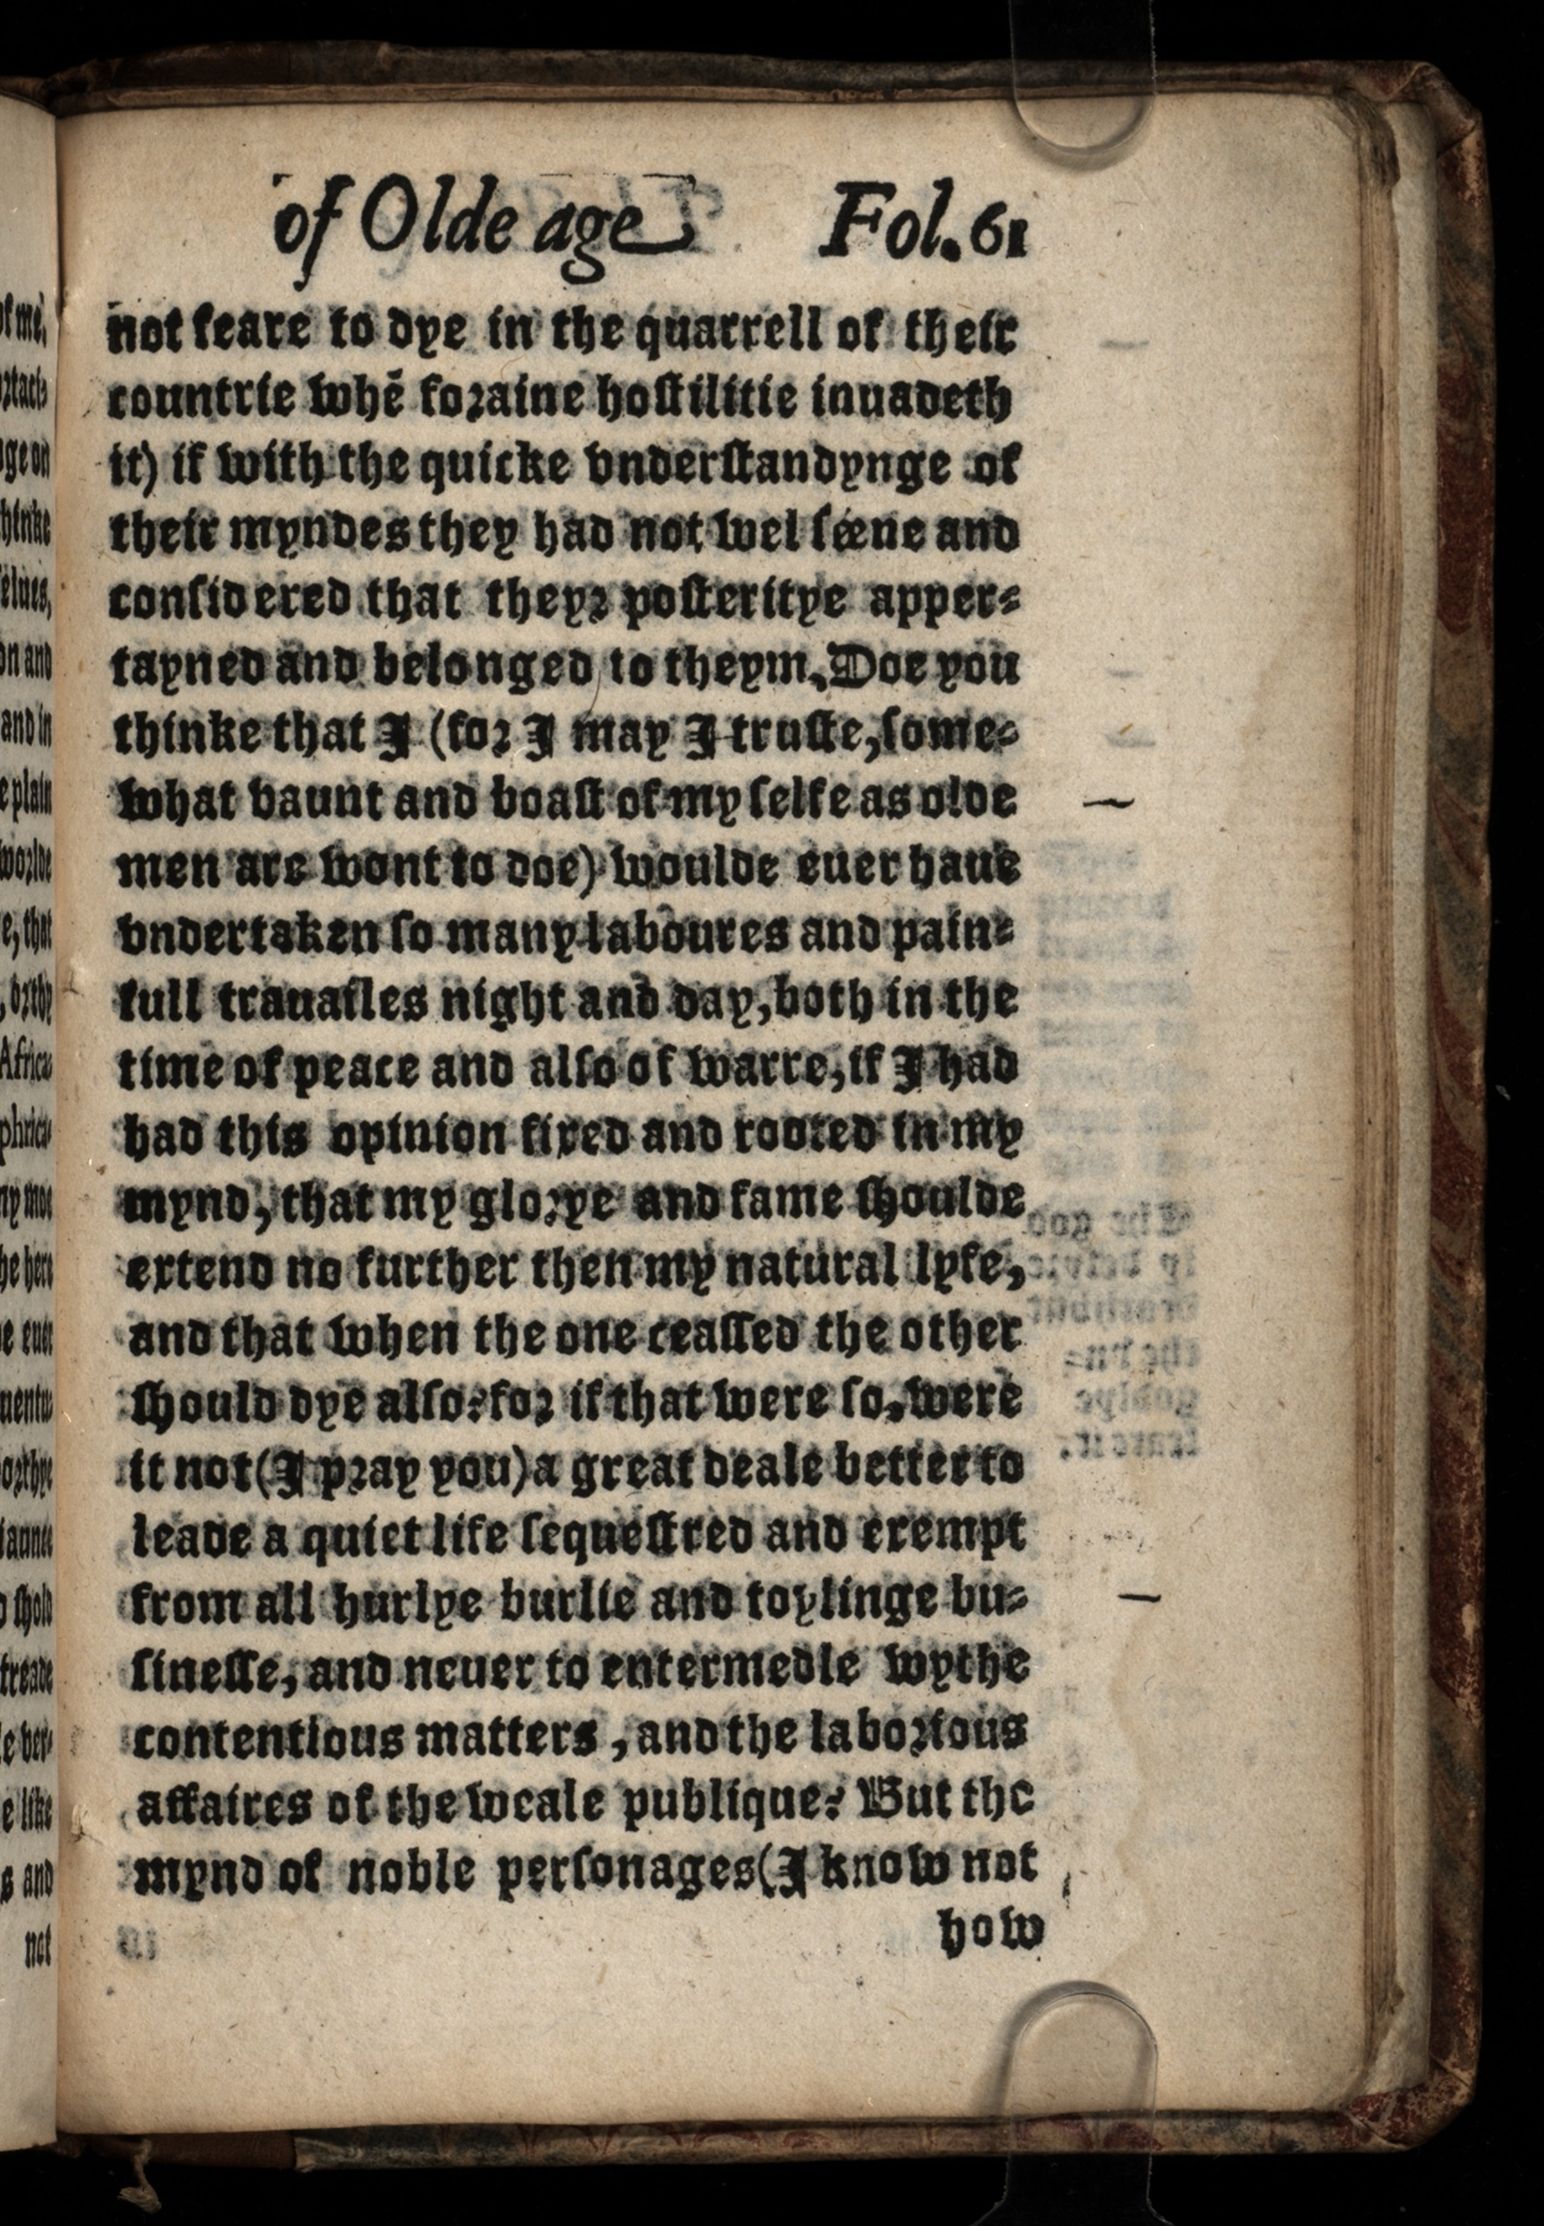 of Olde age Fol. 61
not feare to dye in the quarrell of their
countrie whē foraine hostilitie inuadeth
it) if with the quicke vnderstandynge of
their myndes they had not wel seene and
considered that theyr posteritye apper-
tayned and belonged to theym. Doe you
thinke that I (for I may I truste, some-
what vaunt and boast of my selfe as olde
men are wont to doe) woulde euer haue
vndertaken so many laboures and pain-
full trauailes night and day, both in the
time of peace and also of warre, if I had
had this opinion fixed and rooted in my
mynd, that my glorye and fame shoulde
extend no further then my natural lyfe,
and that when the one ceassed the other
should dye also? for if that were so, were
it not (I pray you) a great deale better to
leade a quiet life sequestred and exempt
from all hurlye burlie and toylinge bu-
sinesse, and neuer to entermedle wythe
contentious matters, and the laborious
affaires of the weale publique? But the
mynd of noble personages (I know not
how